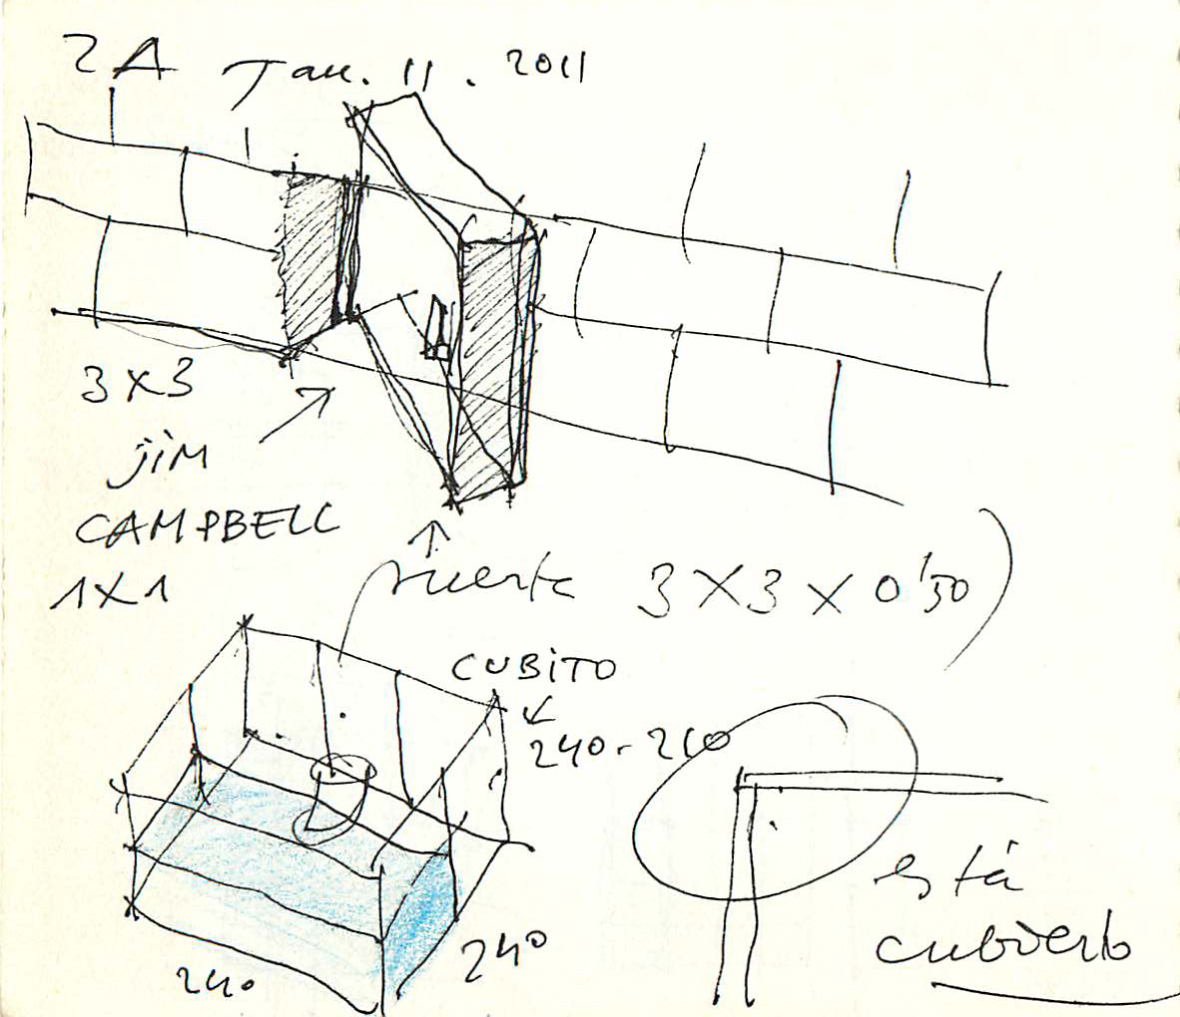 2A Jan. 11. 2011
3x3
JIM
CAMPBELL
1x1
puerta 3x3x0'50
CUBiTO
240-260
240
240
está
cubierto